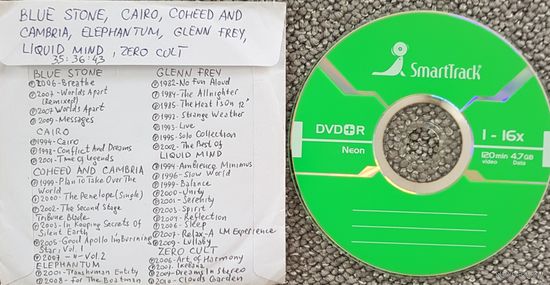 BLUE STONE, CAIRO, COHEED AND
CAMBRIA, ELEPHANTUM, GLENN FREY,
LIQUID MIND, ZERO CULT
35:36:43
BLUE STONE
2006-Breathe
2007-Worlds Apart
(Remixed)
2007 Worlds Apart
2009-Messages
CAIRO
1994-Cairo
1998-Conflict And Dreams
2001-Time of Legends
COHEED AND CAMBRIA
1999-Plan To Take Over The
World
2000-The Penelope (Single)
2002-The Second Stage
Turbine Blade
2003-In Keeping Secrets of
Silent Earth
2005-Good Apollo Im Burning
Star, Vol. 1
2007- -//- Vol. 2
ELEPHANTUM
2001-Transhuman Entity
2008-For The Boatman
GLENN FREY
1982-No Fun Aloud
1984-The Allnighter
1985-The Heat Is On 12"
1992-Strange Weather
1993-Live
1995-Solo Collection
2002-The Best of
LIQUID MIND
1994-Ambience Minimus
1996-Slow World
1999-Balance
2000-Unity
2001-Serenity
2003-Spirit
2004-Reflection
2006-Sleep
2007-Relax-A LM Experience
2009-Lullaby
ZERO CULT
2006-Art of Harmony
2007-
2009-Dreams In Stereo
2010-Clouds Garden
SmartTrack
DVD+R
Neon
1 - 16x
120min 4.7GB
video Data